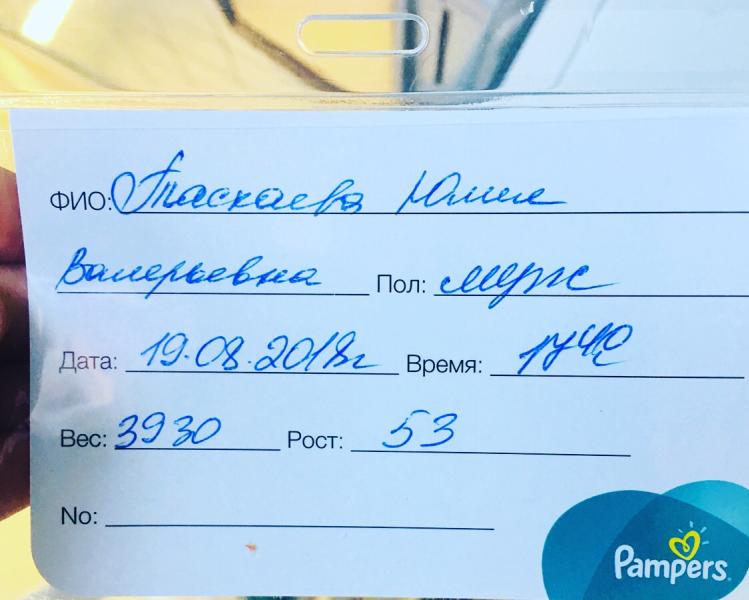 ФИО: Таскаева Юлия
Валерьевна Пол: муж
Дата: 19.08.2018г Время:
Вес: 3930 Рост: 53
No:
Pampers